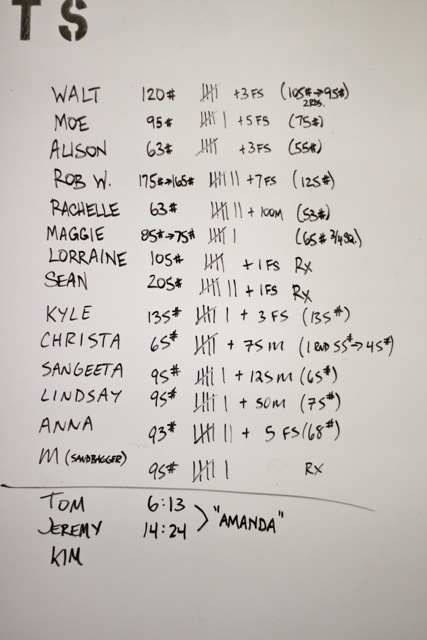 TS
WALT 120# 𝍸 +3FS (105#→95#)
2RDS.
MOE 95# 𝍸 | +5FS (75#)
ALISON 63# 𝍸 +3FS (55#)
ROB W. 175#→165# 𝍸 || +7FS (125#)
RACHELLE 63# 𝍸 || + 100M (53#)
MAGGIE 85#→75# 𝍸 | (65# 3/4SQ.)
LORRAINE 105# 𝍸 +1FS Rx
SEAN 205# 𝍸 || +1FS Rx
KYLE 135# 𝍸 | + 3 FS (135#)
CHRISTA 65# 𝍸 + 75M (1 RND 55#→45#)
SANGEETA 95# 𝍸 | + 125M (65#)
LINDSAY 95# 𝍸 | + 50M (75#)
ANNA 93# 𝍸 || + 5 FS (68#)
M (SANDBAGGER)
95# 𝍸 | Rx
TOM 6:13
JEREMY 14:24 > "AMANDA"
KIM